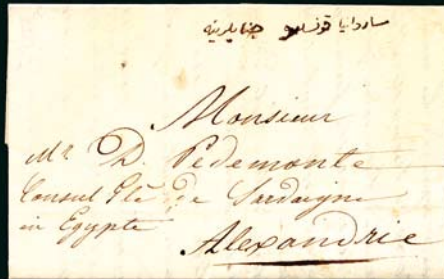 ساردانیا قونسلوسی جنابلرینه
Monsieur
Mr D. Pedemonte
Consul Gle de Sardaigne
in Egypte
Alexandrie